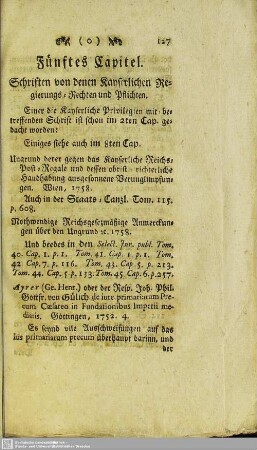 ( o ) 127
Fünftes Capitel.
Schriften von denen Kayserlichen Re-
gierungs-Rechten und Pflichten.
Einer die Kayserliche Privilegien mit be-
treffenden Schrift ist schon im 2ten Cap. ge-
dacht worden:
Einiges siehe auch im 8ten Cap.
Ungrund derer gegen das Kayserliche Reichs-
Post-Regale und dessen obrist-richterliche
Handhabung ausgesonnene Verunglimpfun-
gen. Wien, 1758.
Auch in der Staats-Canzl. Tom. 115.
p. 608.
Nothwendige Reichsgesezmäßige Anmerckun-
gen über den Ungrund ꝛc. 1758.
Und beedes in den Select. Jur. publ. Tom.
40. Cap. 1. p. 1. Tom. 41. Cap. 1. p. 1. Tom.
42 Cap. 7. p. 116. Tom. 43. Cap. 5. p. 213.
Tom. 44. Cap. 5 p. 133. Tom. 45. Cap. 6. p. 257.
Ayrer (Ge. Henr.) oder der Resp. Joh. Phil.
Gottfr. von Gülich de iure primariarum Pre-
cum Cæsareo in Fundationibus Imperii me-
diatis. Göttingen, 1752. 4.
Es seynd vile Ausschweifungen auf das
Ius primariarum precum überhaupt darinn, und
der